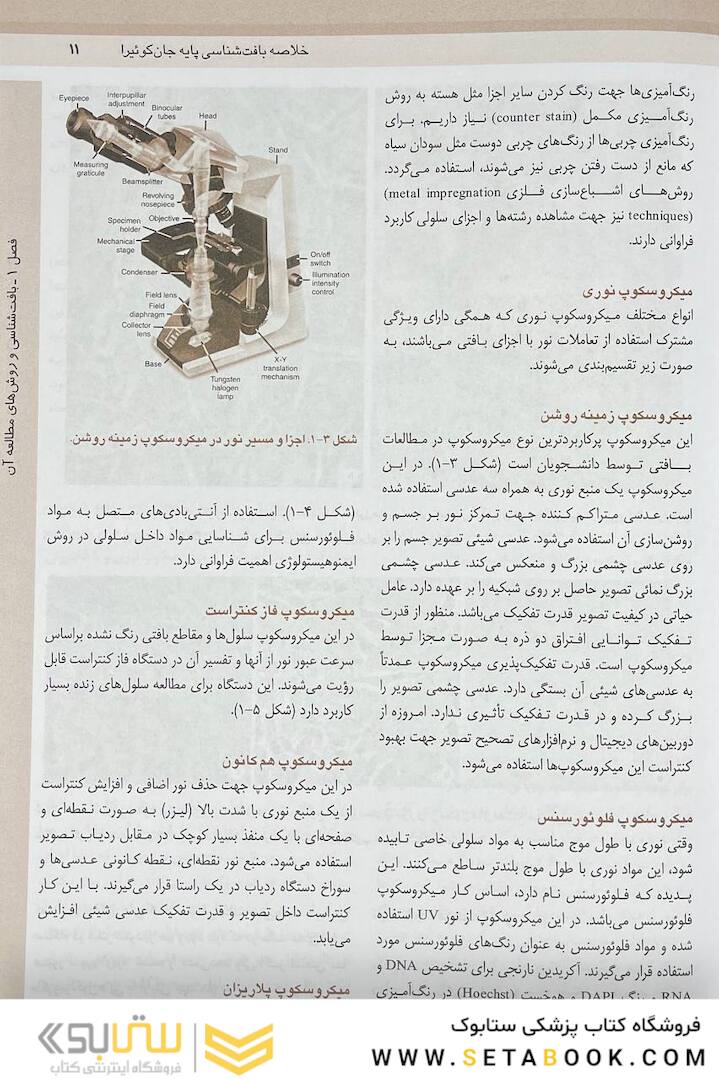 خلاصه بافت‌شناسی پایه جان‌کوئیرا
۱۱
فصل ۱ ـ بافت‌شناسی و روش‌های مطالعه آن
رنگ‌آمیزی‌ها جهت رنگ کردن سایر اجزا مثل هسته به روش
رنگ‌آمیزی مکمل (counter stain) نیاز داریم. برای
رنگ‌آمیزی چربی‌ها از رنگ‌های چربی دوست مثل سودان سیاه
که مانع از دست رفتن چربی نیز می‌شوند، استفاده می‌گردد.
روش‌های اشباع‌سازی فلزی (metal impregnation
techniques) نیز جهت مشاهده رشته‌ها و اجزای سلولی کاربرد
فراوانی دارند.
میکروسکوپ نوری
انواع مختلف میکروسکوپ نوری که همگی دارای ویژگی
مشترک استفاده از تعاملات نور با اجزای بافتی می‌باشند، به
صورت زیر تقسیم‌بندی می‌شوند.
میکروسکوپ زمینه روشن
این میکروسکوپ پرکاربردترین نوع میکروسکوپ در مطالعات
بافتی توسط دانشجویان است (شکل ۳-۱). در این
میکروسکوپ یک منبع نوری به همراه سه عدسی استفاده شده
است. عدسی متراکم کننده جهت تمرکز نور بر جسم و
روشن‌سازی آن استفاده می‌شود. عدسی شیئی تصویر جسم را بر
روی عدسی چشمی بزرگ و منعکس می‌کند. عدسی چشمی
بزرگ نمائی تصویر حاصل بر روی شبکیه را بر عهده دارد. عامل
حیاتی در کیفیت تصویر قدرت تفکیک می‌باشد. منظور از قدرت
تفکیک توانایی افتراق دو ذره به صورت مجزا توسط
میکروسکوپ است. قدرت تفکیک‌پذیری میکروسکوپ عمدتاً
به عدسی‌های شیئی آن بستگی دارد. عدسی چشمی تصویر را
بزرگ کرده و در قدرت تفکیک تأثیری ندارد. امروزه از
دوربین‌های دیجیتال و نرم‌افزارهای تصحیح تصویر جهت بهبود
کنتراست این میکروسکوپ‌ها استفاده می‌شود.
میکروسکوپ فلوئورسنس
وقتی نوری با طول موج مناسب به مواد سلولی خاصی تابیده
شود، این مواد نوری با طول موج بلندتر ساطع می‌کنند. این
پدیده که فلوئورسنس نام دارد، اساس کار میکروسکوپ
فلوئورسنس می‌باشد. در این میکروسکوپ از نور UV استفاده
شده و مواد فلوئورسنس به عنوان رنگ‌های فلوئورسنس مورد
استفاده قرار می‌گیرند. آکریدین نارنجی برای تشخیص DNA و
RNA و رنگ DAPI و هوخست (Hoechst) در رنگ‌آمیزی
Eyepiece
Interpupillar
adjustment
Binocular
tubes
Head
Stand
Measuring
graticule
Beamsplitter
Revolving
nosepiece
Specimen
holder
Objective
Mechanical
stage
Condenser
On/off
switch
Illumination
intensity
control
Field lens
Field
diaphragm
Collector
lens
Base
Tungsten
halogen
lamp
X-Y
translation
mechanism
شکل ۳-۱. اجزا و مسیر نور در میکروسکوپ زمینه روشن.
(شکل ۴-۱). استفاده از آنتی‌بادی‌های متصل به مواد
فلوئورسنس برای شناسایی مواد داخل سلولی در روش
ایمنوهیستولوژی اهمیت فراوانی دارد.
میکروسکوپ فاز کنتراست
در این میکروسکوپ سلول‌ها و مقاطع بافتی رنگ نشده براساس
سرعت عبور نور از آنها و تفسیر آن در دستگاه فاز کنتراست قابل
رؤیت می‌شوند. این دستگاه برای مطالعه سلول‌های زنده بسیار
کاربرد دارد (شکل ۵-۱).
میکروسکوپ هم‌کانون
در این میکروسکوپ جهت حذف نور اضافی و افزایش کنتراست
از یک منبع نوری با شدت بالا (لیزر) به صورت نقطه‌ای و
صفحه‌ای با یک منفذ بسیار کوچک در مقابل ردیاب تصویر
استفاده می‌شود. منبع نور نقطه‌ای، نقطه کانونی عدسی‌ها و
سوراخ دستگاه ردیاب در یک راستا قرار می‌گیرند. با این کار
کنتراست داخل تصویر و قدرت تفکیک عدسی شیئی افزایش
می‌یابد.
میکروسکوپ پلاریزان
فروشگاه کتاب پزشکی ستابوک
WWW.SETABOOK.COM
ستابوک
فروشگاه اینترنتی کتاب